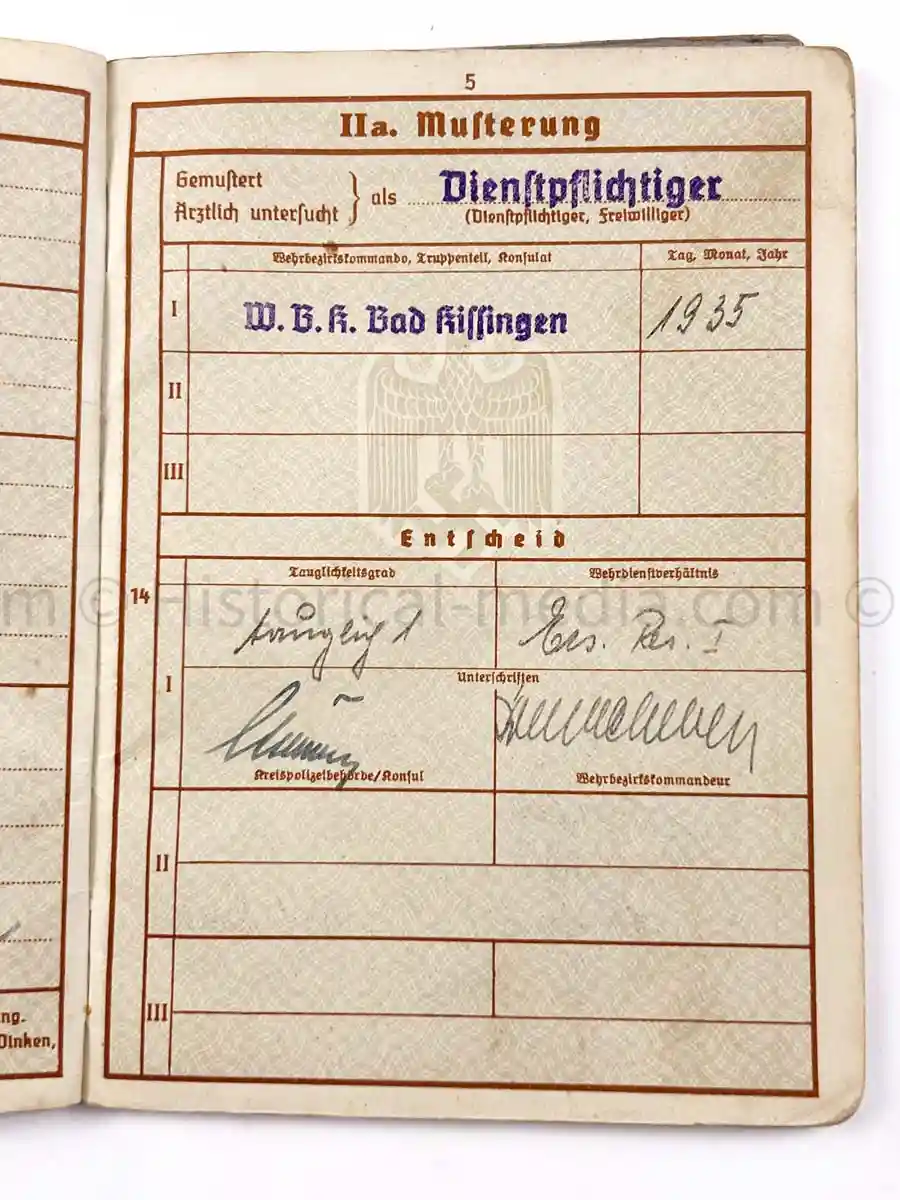 5
IIa. Musterung
Gemustert
Ärztlich untersucht } als Dienstpflichtiger
(Dienstpflichtiger, Freiwilliger)
Wehrbezirkskommando, Truppenteil, Konsulat Tag, Monat, Jahr
I W. B. K. Bad Kissingen 1935
II
III
Entscheid
Tauglichkeitsgrad Wehrdienstverhältnis
14
© Historical-media.com ©
tauglich 1 Ers. Res. I
I
Unterschriften
Kreispolizeibehörde/Konsul Wehrbezirkskommandeur
II
III
ng.
Dinken,